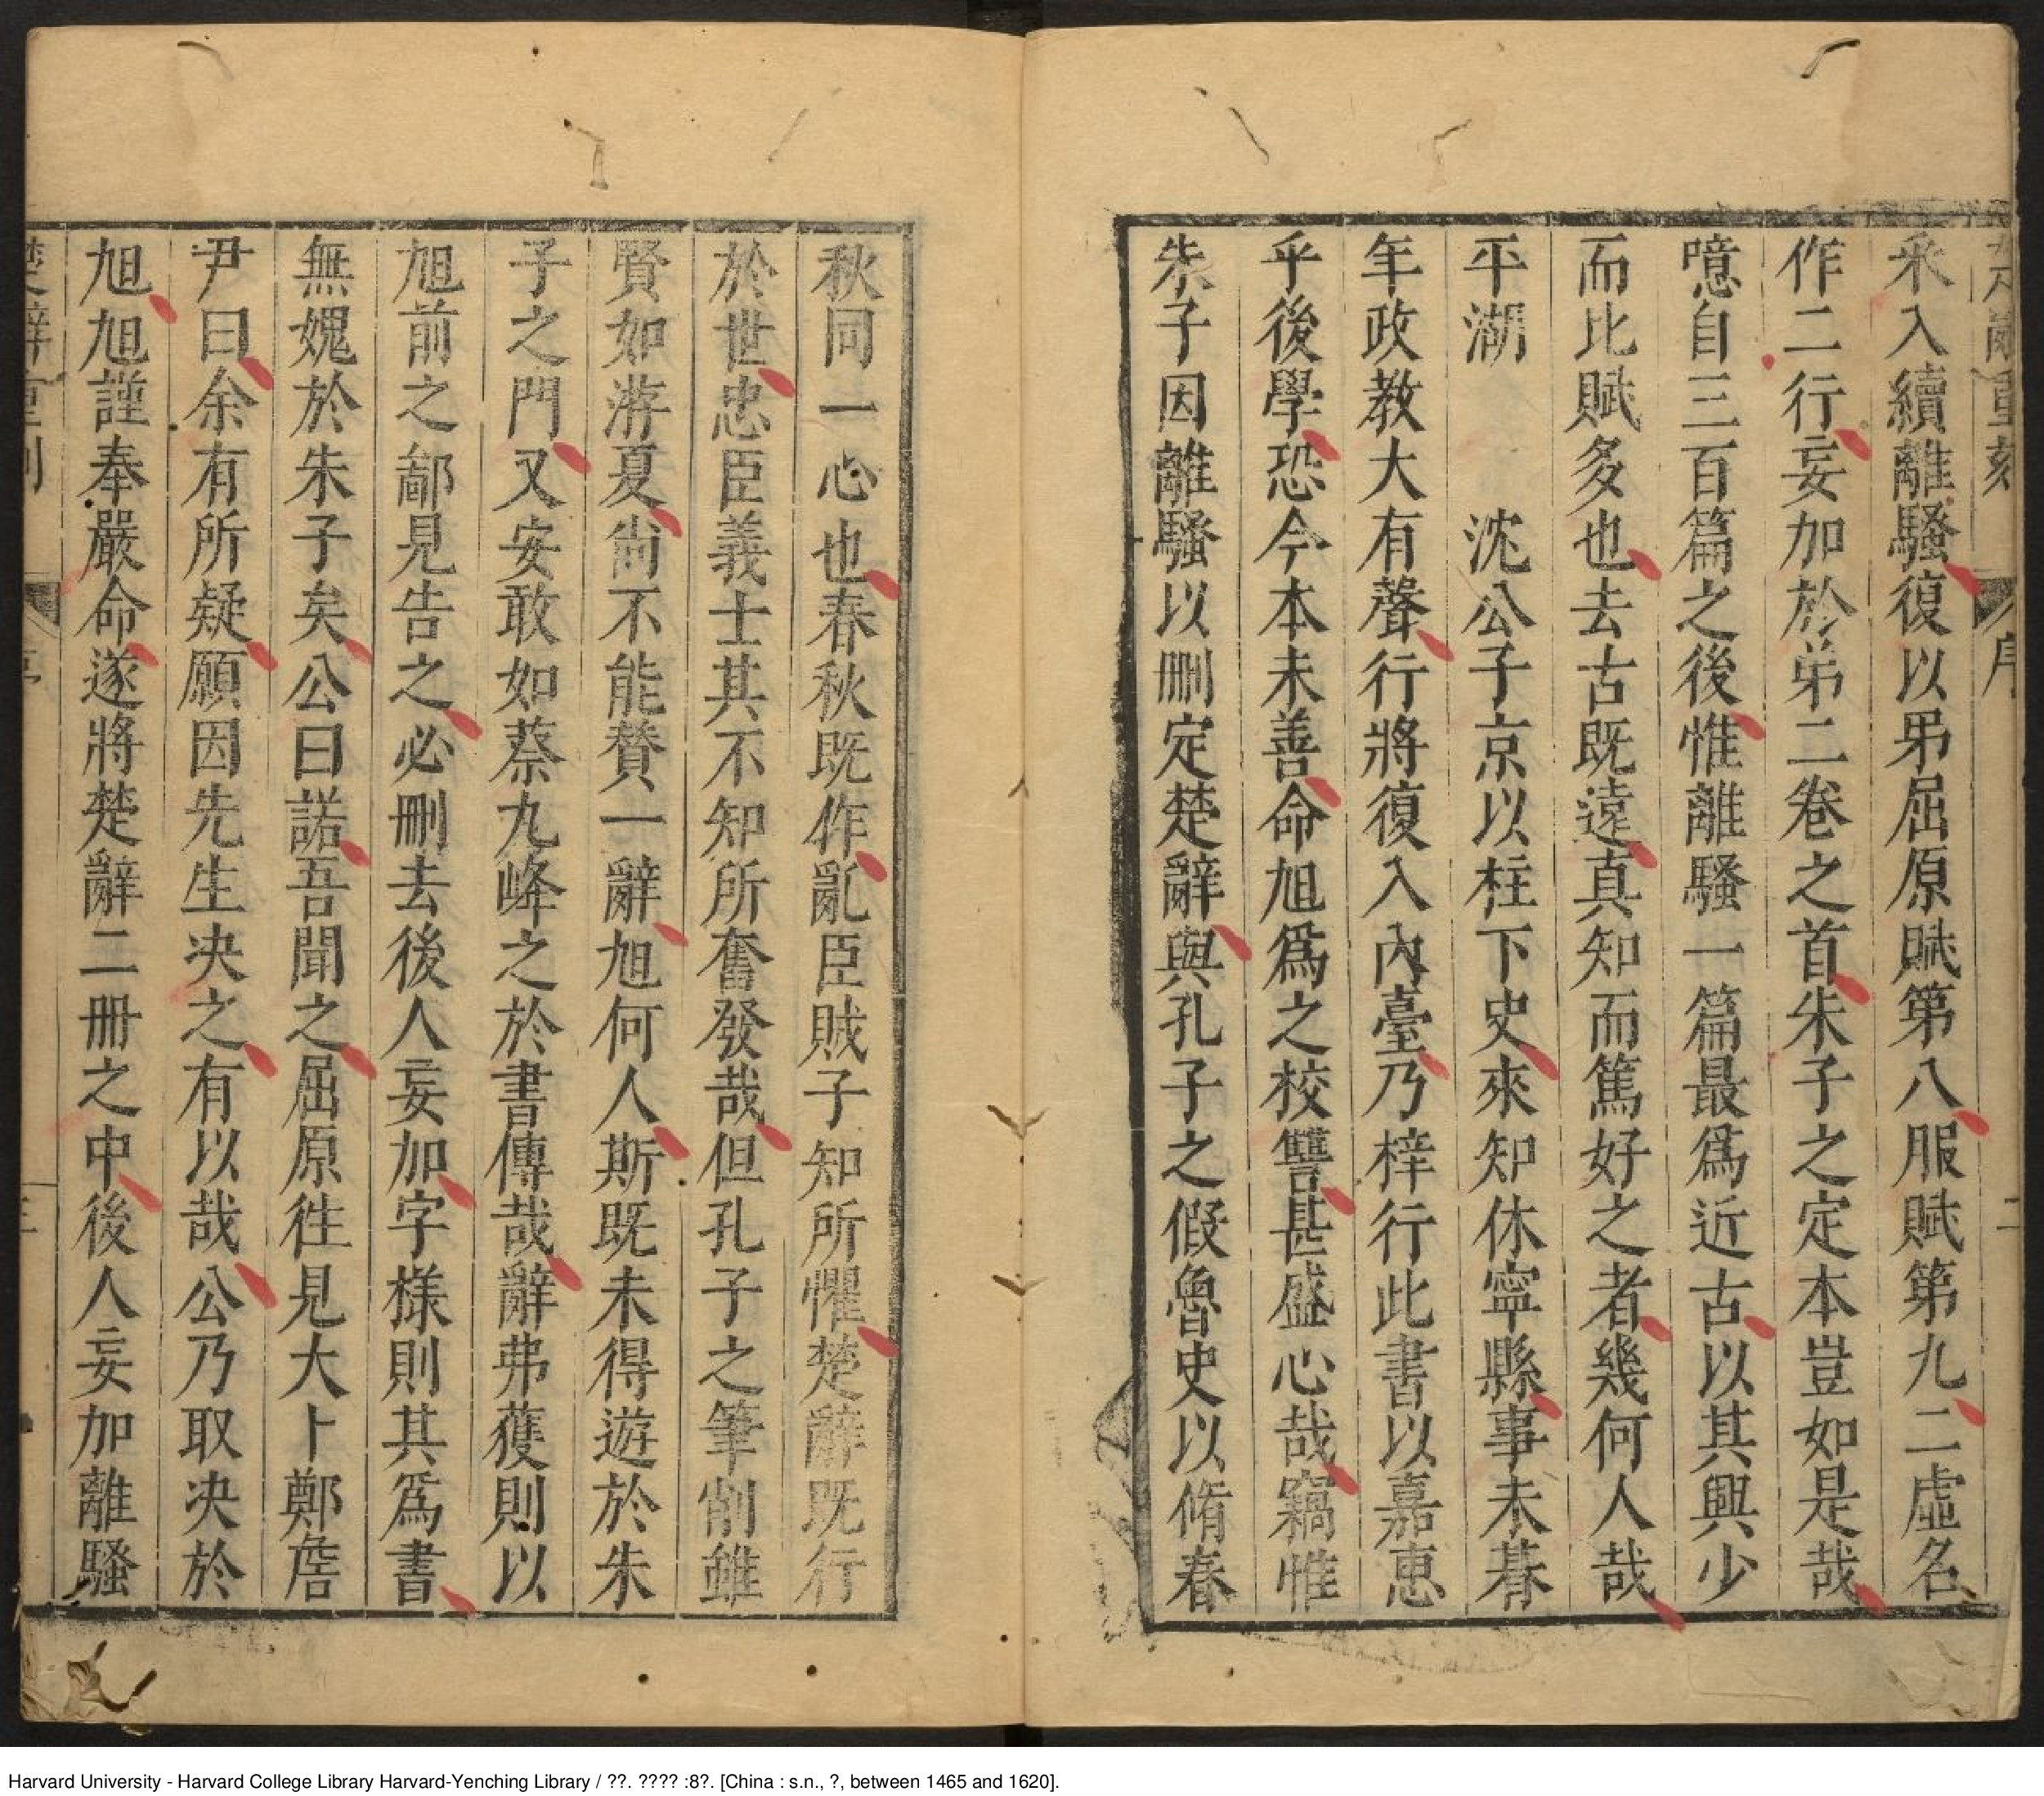 采入續離騷復以弟屈原賦第八服賦第九二虛名
作二行妄加於弟二卷之首朱子之定本豈如是哉
噫自三百篇之後惟離騷一篇最爲近古以其興少
而比賦多也去古既遠真知而篤好之者幾何人哉
平湖 沈公子京以柱下史來知休寧縣事未朞
年政教大有聲行將復入內臺乃梓行此書以嘉惠
乎後學恐今本未善命旭爲之校讐甚盛心哉竊惟
朱子因離騷以刪定楚辭與孔子之假魯史以脩春
秋同一心也春秋既作亂臣賊子知所懼楚辭既行
於世忠臣義士其不知所奮發哉但孔子之筆削雖
賢如游夏尙不能贊一辭旭何人斯既未得遊於朱
子之門又安敢如蔡九峰之於書傳哉辭弗獲則以
旭前之鄙見告之必刪去後人妄加字樣則其爲書
無媿於朱子矣公曰諾吾聞之屈原徃見大卜鄭詹
尹曰余有所疑願因先生决之有以哉公乃取决於
旭旭謹奉嚴命遂將楚辭二冊之中後人妄加離騷
Harvard University - Harvard College Library Harvard-Yenching Library / ??. ???? :8?. [China : s.n., ?, between 1465 and 1620].